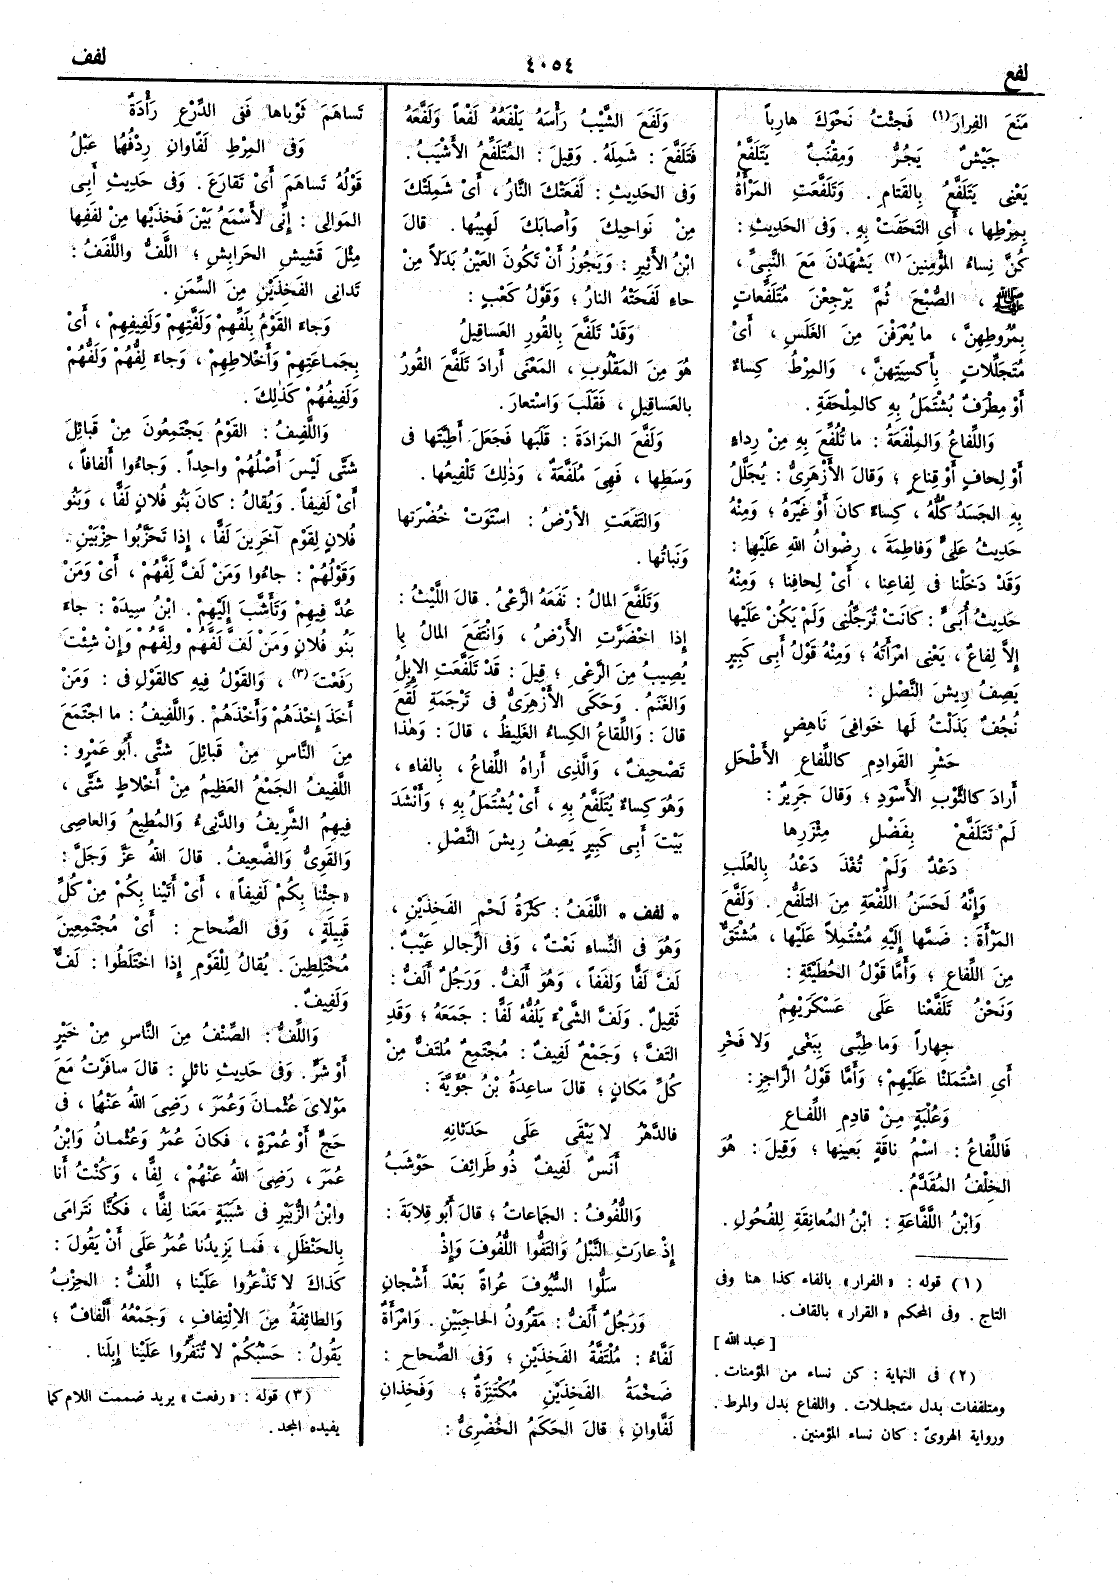 لفع
٤٠٥٤
لفف
مَنَعَ الفِرارَ(١) فَجِئْتُ نَحْوَكَ هارِباً
جَيْشٌ يَجُرُّ وَمِقْنَبٌ يَتَلَفَّعُ
يَعْنِى يَتَلَفَّعُ بِالقَتامِ . وَتَلَفَّعَتِ المَرْأَةُ
بِمِرْطِها ، أَىِ الْتَحَفَتْ بِهِ . وَفى الحَدِيثِ :
كُنَّ نِساءُ المُؤْمِنينَ(٢) يَشْهَدْنَ مَعَ النَّبِىِّ ،
ﷺ ، الصُّبْحَ ثُمَّ يَرْجِعْنَ مُتَلَفِّعاتٍ
بِمُرُوطِهِنَّ ، ما يُعْرَفْنَ مِنَ الغَلَسِ ، أَىْ
مُتَجَلِّلاتٍ بِأَكْسِيَتِهِنَّ ، وَالمِرْطُ كِساءٌ
أَوْ مِطْرَفٌ يُشْتَمَلُ بِهِ كالمِلْحَفَةِ .
وَاللِّفاعُ وَالمِلْفَعَةُ : ما تُلُفِّعَ بِهِ مِنْ رِداءٍ
أَوْ لِحافٍ أَوْ قِناعٍ ؛ وَقالَ الأَزْهَرِىُّ : يُجَلَّلُ
بِهِ الجَسَدُ كُلُّهُ ، كِساءً كانَ أَوْ غَيْرَهُ ؛ وَمِنْهُ
حَدِيثُ عَلِىٍّ وَفاطِمَةَ ، رِضْوانُ اللهِ عَلَيْها :
وَقَدْ دَخَلْنا فى لِفاعِنا ، أَىْ لِحافِنا ؛ وَمِنْهُ
حَدِيثُ أُبَىٍّ : كانَتْ تُرَجِّلُنِى وَلَمْ يَكُنْ عَلَيْها
إِلاَّ لِفاعٌ ، يَعْنِى امْرَأَتَهُ ؛ وَمِنْهُ قَوْلُ أَبِى كَبِيرٍ
يَصِفُ رِيشَ النَّصْلِ :
نُجُفٌ بَذَلْتُ لَها خَوافِىَ ناهِضٍ
حَشْرِ القَوادِمِ كاللِّفاعِ الأَطْحَلِ
أَرادَ كالثَّوْبِ الأَسْوَدِ ؛ وَقالَ جَرِيرٌ :
لَمْ تَتَلَفَّعْ بِفَضْلِ مِئْزَرِها
دَعْدٌ وَلَمْ تُغْذَ دَعْدُ بِالعُلَبِ
وَإِنَّهُ لَحَسَنُ اللِّفْعَةِ مِنَ التَلَفُّعِ . وَلَفَّعَ
المَرْأَةَ : ضَمَّها إِلَيْهِ مُشْتَمِلاً عَلَيْها ، مُشْتَقٌّ
مِنَ اللِّفاعِ ؛ وَأَمَّا قَوْلُ الحُطَيْئَةِ :
وَنَحْنُ تَلَفَّعْنا عَلَى عَسْكَرَيْهِمُ
جِهاراً وَما طِبِّى بِبَغْىٍ وَلا فَخْرِ
أَىِ اشْتَمَلْنا عَلَيْهِمْ ؛ وَأَمَّا قَوْلُ الرَّاجِزِ :
وَعُلْبَةٍ مِنْ قادِمِ اللِّفاعِ
فَاللِّفاعُ : اسْمُ ناقَةٍ بِعَيْنِها ؛ وَقِيلَ : هُوَ
الخِلْفُ المُقَدَّمُ .
وَابْنُ اللَّفَّاعَةِ : ابْنُ المُعانِقَةِ لِلْفُحُولِ .
(١) قوله : «الفرار» بالفاء كذا هنا وفى
التاج . وفى المحكم «القرار» بالقاف .
[عبد الله]
(٢) فى النهاية : كن نساء من المؤمنات .
ومتلففات بدل متجللات . واللفاع بدل والمرط .
ورواية الهروىّ : كان نساء المؤمنين .
وَلَفَعَ الشَّيْبُ رَأْسَهُ يَلْفَعُهُ لَفْعاً وَلَفَّعَهُ
فَتَلَفَّعَ : شَمِلَهُ . وَقِيلَ : المُتَلَفِّعُ الأَشْيَبُ .
وَفى الحَدِيثِ : لَفَعَتْكَ النَّارُ ، أَىْ شَمِلَتْكَ
مِنْ نَواحِيكَ وَأَصابَكَ لَهِيبُها . قالَ
ابْنُ الأَثِيرِ : وَيَجُوزُ أَنْ تَكُونَ العَيْنُ بَدَلاً مِنْ
حاءِ لَفَحَتْهُ النارُ ؛ وَقَوْلُ كَعْبٍ :
وَقَدْ تَلَفَّعَ بِالقُورِ العَساقِيلُ
هُوَ مِنَ المَقْلُوبِ ، المَعْنَى أَرادَ تَلَفَّعَ القُورُ
بِالعَساقِيلِ ، فَقَلَبَ وَاسْتعارَ .
وَلَفَّعَ المَزادَةَ : قَلَبَها فَجَعَلَ أَطِبَّتَها فى
وَسَطِها ، فَهِىَ مُلَفَّعَةٌ ، وَذٰلِكَ تَلْفِيعُها .
وَالْتَفَعَتِ الأَرْضُ : اسْتَوَتْ خُضْرَتُها
وَنَباتُها .
وَتَلَفَّعَ المالُ : نَفَعَهُ الرَّعْىُ . قالَ اللَّيْثُ :
إِذا اخْضَرَّتِ الأَرْضُ ، وَانْتَفَعَ المالُ بِما
يُصِيبُ مِنَ الرَّعْىِ ؛ قِيلَ : قَدْ تَلَفَّعَتِ الإِبِلُ
وَالغَنَمُ . وَحَكَى الأَزْهَرِىُّ فى تَرْجَمَةِ لَقَعَ
قالَ : وَاللِّقاعُ الكِساءُ الغَلِيظُ ، قالَ : وَهٰذا
تَصْحِيفٌ ، وَالَّذِى أَراهُ اللِّفاعُ ، بِالفاءِ ،
وَهُوَ كِساءٌ يُتَلَفَّعُ بِهِ ، أَىْ يُشْتَمَلُ بِهِ ؛ وَأَنْشَدَ
بَيْتَ أَبِى كَبِيرٍ يَصِفُ رِيشَ النَّصْلِ .
* لفف * اللَّفَفُ : كَثْرَةُ لَحْمِ الفَخِذَيْنِ ،
وَهُوَ فى النِّساءِ نَعْتٌ ، وَفى الرِّجالِ عَيْبٌ .
لَفَّ لَفًّا وَلَفَفاً ، وَهُوَ أَلَفُّ . وَرَجُلٌ أَلَفُّ :
ثَقِيلٌ . وَلَفَّ الشَّىْءَ يَلُفُّهُ لَفًّا : جَمَعَهُ ؛ وَقَدِ
التَفَّ ؛ وَجَمْعٌ لَفِيفٌ : مُجْتَمِعٌ مُلْتَفٌّ مِنْ
كُلِّ مَكانٍ ؛ قالَ ساعِدَةُ بْنُ جُوَيَّةَ :
فالدَّهْرُ لا يَبْقَى عَلَى حَدَثانِهِ
أَنَسٌ لَفِيفٌ ذُو طَرائِفَ حَوْشَبُ
وَاللُّفُوفُ : الجَماعاتُ ؛ قالَ أَبُو قِلابَةَ :
إِذْ عارَتِ النَّبْلُ وَالتَفُّوا اللُّفُوفَ وَإِذْ
سَلُّوا السُّيُوفَ عُراةً بَعْدَ أَشْجانِ
وَرَجُلٌ أَلَفُّ : مَقْرُونُ الحاجِبَيْنِ . وَامْرَأَةٌ
لَفَّاءُ : مُلْتَفَّةُ الفَخِذَيْنِ ؛ وَفى الصِّحاحِ :
ضَخْمَةُ الفَخِذَيْنِ مُكْتَنِزَةٌ ؛ وَفَخِذانِ
لَفَّاوانِ ؛ قالَ الحَكَمُ الخُضْرِىُّ :
تَساهَمَ ثَوْباها فَفى الدِّرْعِ رَأْدَةٌ
وَفى المِرْطِ لَفَّاوانِ رِدْفُهُما عَبْلُ
قَوْلُهُ تَساهَمَ أَىْ تَقارَعَ . وَفى حَدِيثِ أَبِى
المَوالِى : إِنِّى لأَسْمَعُ بَيْنَ فَخِذَيْها مِنْ لَفَفِها
مِثْلَ قَشِيشِ الحَرابِشِ ؛ اللَّفُّ وَاللَّفَفُ :
تَدانِى الفَخِذَيْنِ مِنَ السِّمَنِ .
وَجاءَ القَوْمُ بِلَفِّهِمْ وَلَفَّتِهِمْ وَلَفِيفِهِمْ ، أَىْ
بِجَماعَتِهِمْ وَأَخْلاطِهِمْ ، وَجاءَ لِفُّهُمْ وَلَفُّهُمْ
وَلَفِيفُهُمْ كَذٰلِكَ .
وَاللَّفِيفُ : القَوْمُ يَجْتَمِعُونَ مِنْ قَبائِلَ
شَتَّى لَيْسَ أَصْلُهُمْ واحِداً . وَجاءُوا أَلْفافاً ،
أَىْ لَفِيفاً . وَيُقالُ : كانَ بَنُو فُلانٍ لَفًّا ، وَبَنُو
فُلانٍ لِقَوْمٍ آخَرِينَ لَفًّا ، إِذا تَحَزَّبُوا حِزْبَيْنِ .
وَقَوْلُهُمْ : جاءُوا وَمَنْ لَفَّ لَفَّهُمْ ، أَىْ وَمَنْ
عُدَّ فِيهِمْ وَتَأَشَّبَ إِلَيْهِمْ . ابْنُ سِيدَهْ : جاءَ
بَنُو فُلانٍ وَمَنْ لَفَّ لَفَّهُمْ وَلِفَّهُمْ وَإِنْ شِئْتَ
رَفَعْتَ(٣) ، وَالقَوْلُ فِيهِ كالقَوْلِ فى : وَمَنْ
أَخَذَ إِخْذَهُمْ وَأَخْذَهُمْ . وَاللَّفِيفُ : ما اجْتَمَعَ
مِنَ النَّاسِ مِنْ قَبائِلَ شَتَّى . أَبُو عَمْرٍو :
اللَّفِيفُ الجَمْعُ العَظِيمُ مِنْ أَخْلاطٍ شَتَّى ،
فِيهِمُ الشَّرِيفُ وَالدَّنِىءُ وَالمُطِيعُ وَالعاصِى
وَالقَوِىُّ وَالضَّعِيفُ . قالَ اللهُ عَزَّ وَجَلَّ :
«جِئْنا بِكُمْ لَفِيفاً» ، أَىْ أَتَيْنا بِكُمْ مِنْ كُلِّ
قَبِيلَةٍ ، وَفى الصِّحاحِ : أَىْ مُجْتَمِعِينَ
مُخْتَلِطِينَ . يُقالُ لِلْقَوْمِ إِذا اخْتَلَطُوا : لَفٌّ
وَلَفِيفٌ .
وَاللِّفُّ : الصِّنْفُ مِنَ النَّاسِ مِنْ خَيْرٍ
أَوْ شَرٍّ . وَفى حَدِيثِ نائِلٍ : قالَ سافَرْتُ مَعَ
مَوْلاىَ عُثْمانَ وَعُمَرَ ، رَضِىَ اللهُ عَنْهُما ، فى
حَجٍّ أَوْ عُمْرَةٍ ، فَكانَ عُمَرُ وَعُثْمانُ وَابْنُ
عُمَرَ ، رَضِىَ اللهُ عَنْهُمْ ، لِفًّا ، وَكُنْتُ أَنا
وابْنُ الزُّبَيْرِ فى شَبَبَةٍ مَعَنا لِفًّا ، فَكُنَّا نَتَرامَى
بِالحَنْظَلِ ، فَما يَزِيدُنا عُمَرُ عَلَى أَنْ يَقُولَ :
كَذاكَ لا تَذْعَرُوا عَلَيْنا ؛ اللِّفُّ : الحِزْبُ
وَالطائِفَةُ مِنَ الاِلْتِفافِ ، وَجَمْعُهُ أَلْفافٌ ؛
يَقُولُ : حَسْبُكُمْ لا تُنَفِّرُوا عَلَيْنا إِبِلَنا .
(٣) قوله : «رفعت» يريد ضممت اللام كما
يفيده المجد .